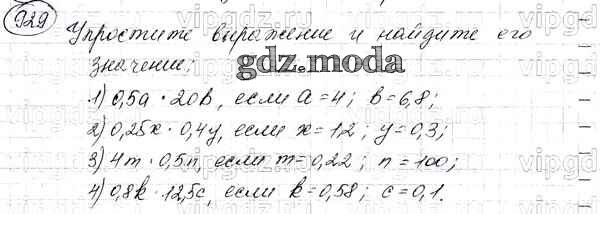 929
Упростите выражение и найдите его
значение:
gdz.moda
1) 0,5a · 20b, если a = 4; b = 6,8;
2) 0,25x · 0,4y, если x = 12; y = 0,3;
3) 4m · 0,5n, если m = 0,22; n = 100;
4) 0,8k · 12,5c, если k = 0,58; c = 0,1.